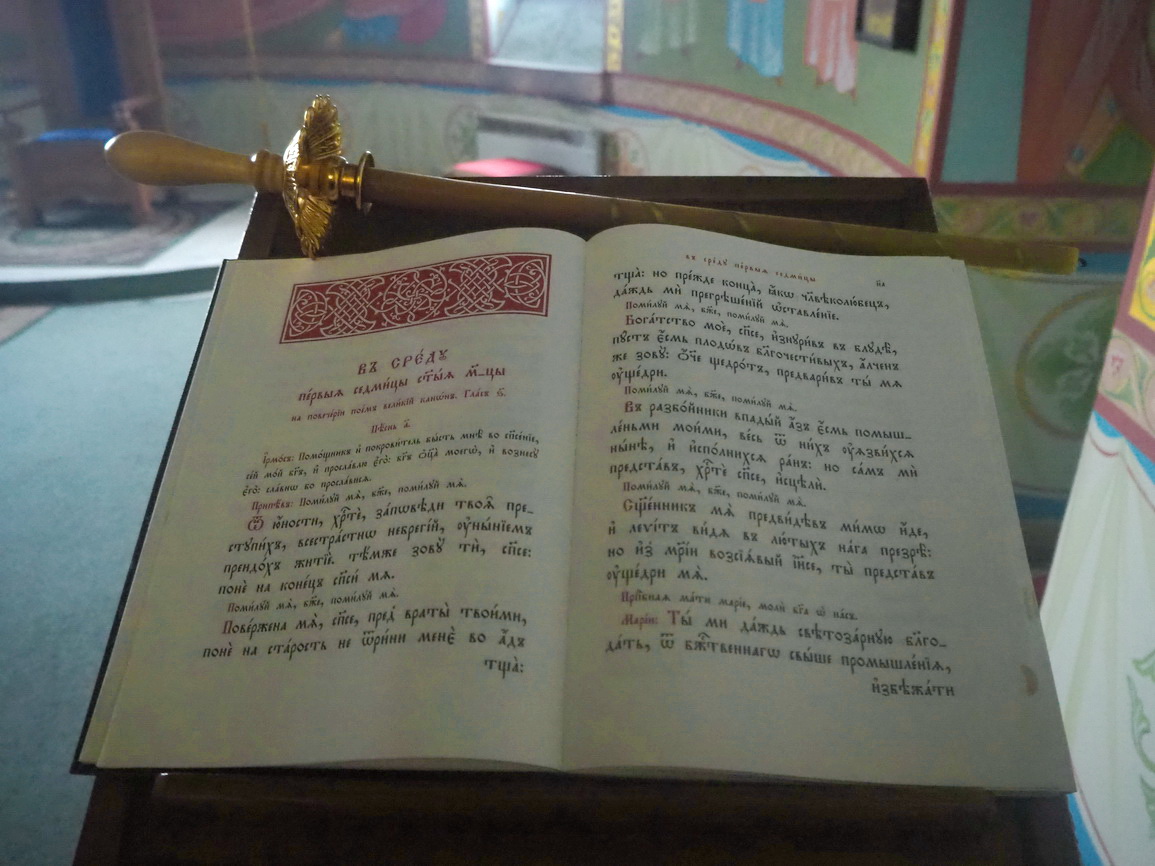 въ сре́дꙋ
пе́рвыѧ седми́цы ст҃ы́ѧ м҃-цы
на повече́рїи пое́мъ вели́кїй кано́нъ. Гла́съ ѕ҃.
Пѣ́снь а҃.
І҆рмо́съ: Помо́щникъ и҆ покрови́тель бы́сть мнѣ̀ во сп҃се́нїе,
се́й мо́й бг҃ъ, и҆ просла́влю є҆го̀: бг҃ъ ѻ҆ц҃а̀ моегѡ̀, и҆ вознесꙋ̀
є҆го̀: сла́внѡ бо просла́висѧ.
Припѣ́въ: Поми́лꙋй мѧ̀, бж҃е, поми́лꙋй мѧ̀.
Ѿ ю҆́ности, хр҇тѐ, за́пѡвѣди твоѧ̑ пре-
стꙋпи́хъ, всестра́стнѡ небрегі́й, ᲂу҆ны́нїемъ
преидо́хъ житїѐ. тѣ́мже зовꙋ́ ти, сп҃се:
понѐ на коне́цъ сп҃си́ мѧ.
Поми́лꙋй мѧ̀, бж҃е, поми́лꙋй мѧ̀.
Пове́ржена мѧ̀, сп҃се, пред̾ враты̑ твои́ми,
понѐ на ста́рость не ѿри́ни менѐ во а҆́дъ
тща̀:
въ сре́дꙋ пе́рвыѧ седми́цы
на
тща̀: но пре́жде конца̀, ꙗ҆́кѡ чл҃вѣколю́бецъ,
да́ждь мѝ прегрѣше́нїй ѡ҆ставле́нїе.
Поми́лꙋй мѧ̀, бж҃е, поми́лꙋй мѧ̀.
Бога́тство моѐ, сп҃се, и҆знꙋри́въ въ блꙋ́дѣ,
пꙋ́стъ є҆́смь плодѡ́въ бл҃гочести́выхъ, а҆́лченъ
же зовꙋ̀: ѻ҆́ч҃е щедро́тъ, предвари́въ ты́ мѧ
ᲂу҆ще́дри.
Поми́лꙋй мѧ̀, бж҃е, поми́лꙋй мѧ̀.
Въ разбо́йники впады́й а҆́зъ є҆́смь помыш-
ле́ньми мои́ми, ве́сь ѿ ни́хъ ᲂу҆ѧзви́хсѧ
ны́нѣ, и҆ и҆спо́лнихсѧ ра́нъ: но са́мъ мѝ
предста́въ, хр҇тѐ сп҃се, и҆сцѣлѝ.
Поми́лꙋй мѧ̀, бж҃е, поми́лꙋй мѧ̀.
Сщ҃е́нникъ мѧ̀ предви́дѣвъ ми́мѡ и҆́де,
и҆ леѵі́тъ ви́дѧ въ лю́тыхъ на́га презрѣ̀:
но и҆з̾ мр҃і́и возсїѧ́вый і҆и҃се, ты̀ предста́въ
ᲂу҆ще́дри мѧ̀.
Прпⷣбнаѧ ма́ти марі́е, молѝ бг҃а ѡ҆ на́съ.
Марі́и: Ты́ ми да́ждь свѣтоза́рнꙋю бл҃го-
да́ть, ѿ бжⷭ҇твеннагѡ свы́ше промышле́нїѧ,
и҆збѣжа́ти